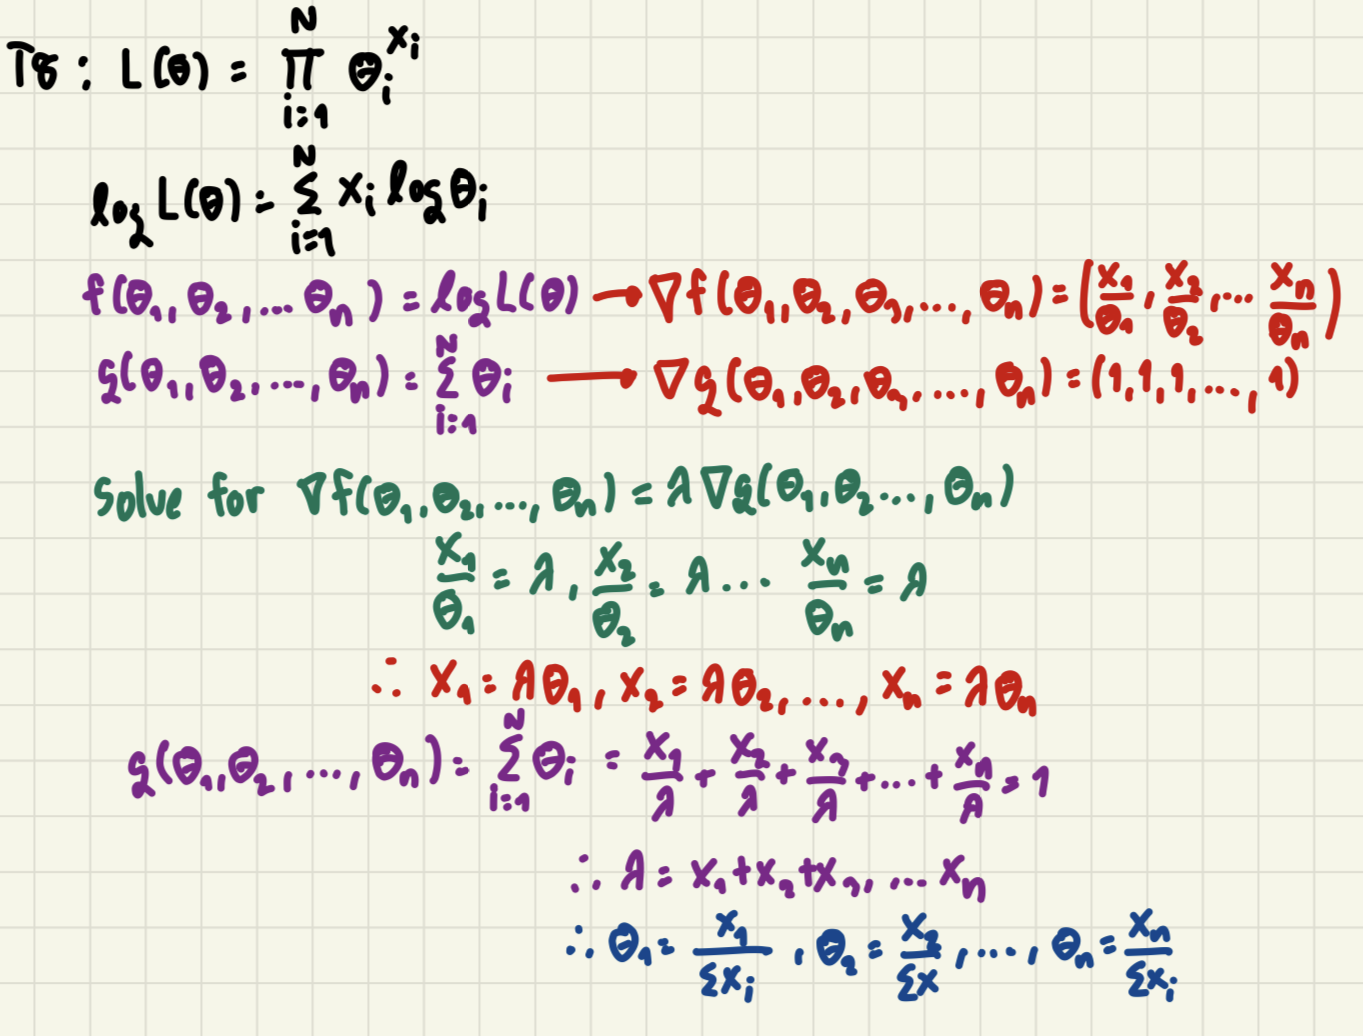 T8 : L(θ) = ∏_{i=1}^{N} θ_i^{x_i}
log L(θ) = Σ_{i=1}^{N} x_i log θ_i
f(θ_1, θ_2, ... θ_n) = log L(θ) → ∇f(θ_1, θ_2, θ_3, ..., θ_n) = (x_1/θ_1, x_2/θ_2, ... x_n/θ_n)
g(θ_1, θ_2, ..., θ_n) = Σ_{i=1}^{N} θ_i → ∇g(θ_1, θ_2, θ_3, ..., θ_n) = (1, 1, 1, ..., 1)
Solve for ∇f(θ_1, θ_2, ..., θ_n) = λ∇g(θ_1, θ_2 ..., θ_n)
x_1/θ_1 = λ, x_2/θ_2 = λ ... x_n/θ_n = λ
∴ x_1 = λθ_1, x_2 = λθ_2, ..., x_n = λθ_n
g(θ_1, θ_2, ..., θ_n) = Σ_{i=1}^{N} θ_i = x_1/λ + x_2/λ + x_3/λ + ... + x_n/λ = 1
∴ λ = x_1 + x_2 + x_3, ... x_n
∴ θ_1 = x_1/Σx_i, θ_2 = x_2/Σx, ..., θ_n = x_n/Σx_i